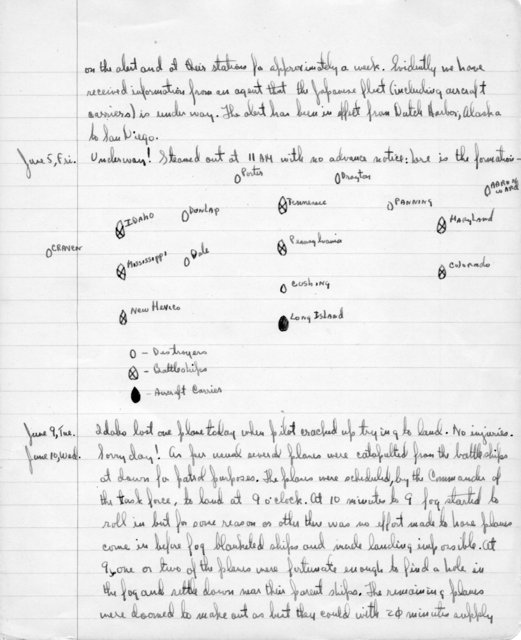 on the alert and at their stations for approximately a week. Evidently we have
received information from an agent that the Japanese fleet (including aircraft
carriers) is under way. The alert has been in effect from Dutch Harbor, Alaska
to San Diego.
June 5, Fri. Underway! Steamed out at 11 AM with no advance notice: here is the formation -
Porter Drayton
AARON WARD
IDAHO DUNLAP Tennessee FANNING
MARYLAND
CRAVEN Mississippi Dale Pennsylvania
Colorado
CUSHING
NEW MEXICO LONG ISLAND
- Destroyers
- Battleships
- Aircraft Carrier
June 9, Tue. Idaho lost one plane today when pilot cracked up trying to land. No injuries.
June 10, Wed. Sorry day! As per usual several planes were catapulted from the battleships
at dawn for patrol purposes. The planes were scheduled, by the Commander of
the task force, to land at 9 o'clock. At 10 minutes to 9 fog started to
roll in but for some reason or other there was no effort made to have planes
come in before fog blanketed ships and made landing impossible. At
9, one or two of the planes were fortunate enough to find a hole in
the fog and settle down near their parent ships. The remaining planes
were doomed to make out as best they could with 20 minutes supply